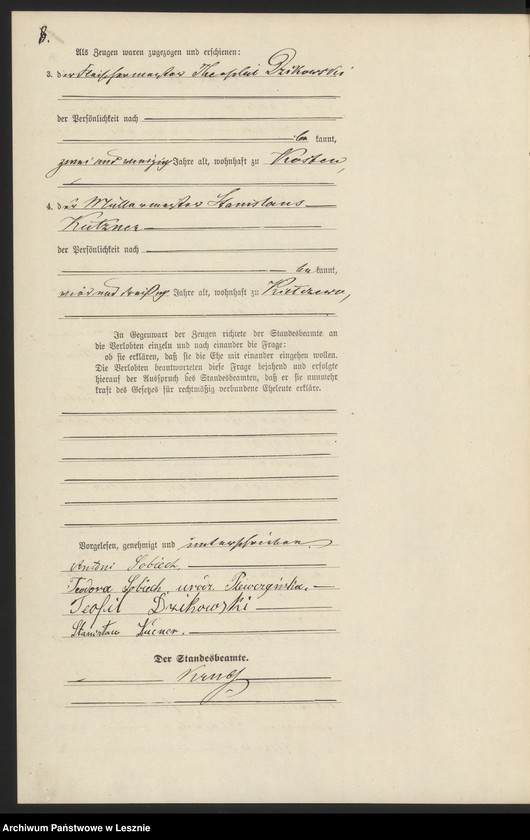 8.
Als Zeugen waren zugezogen und erschienen:
3. der Fleischermeister Theophil Dzikowski
der Persönlichkeit nach
be kannt,
zwei und vierzig Jahre alt, wohnhaft zu Kosten,
4. der Müllermeister Stanislaus
Kutzner
der Persönlichkeit nach
be kannt,
vier und dreißig Jahre alt, wohnhaft zu
In Gegenwart der Zeugen richtete der Standesbeamte an
die Verlobten einzeln und nach einander die Frage:
ob sie erklären, daß sie die Ehe mit einander eingehen wollen.
Die Verlobten beantworteten diese Frage bejahend und erfolgte
hierauf der Ausspruch des Standesbeamten, daß er sie nunmehr
kraft des Gesetzes für rechtmäßig verbundene Eheleute erkläre.
Vorgelesen, genehmigt und unterschrieben.
Antoni Sobiech.
Teodora Sobiech urodz.
Teofil Dzikowski
Stanisław Kucner.
Der Standesbeamte.
Krug
Archiwum Państwowe w Lesznie